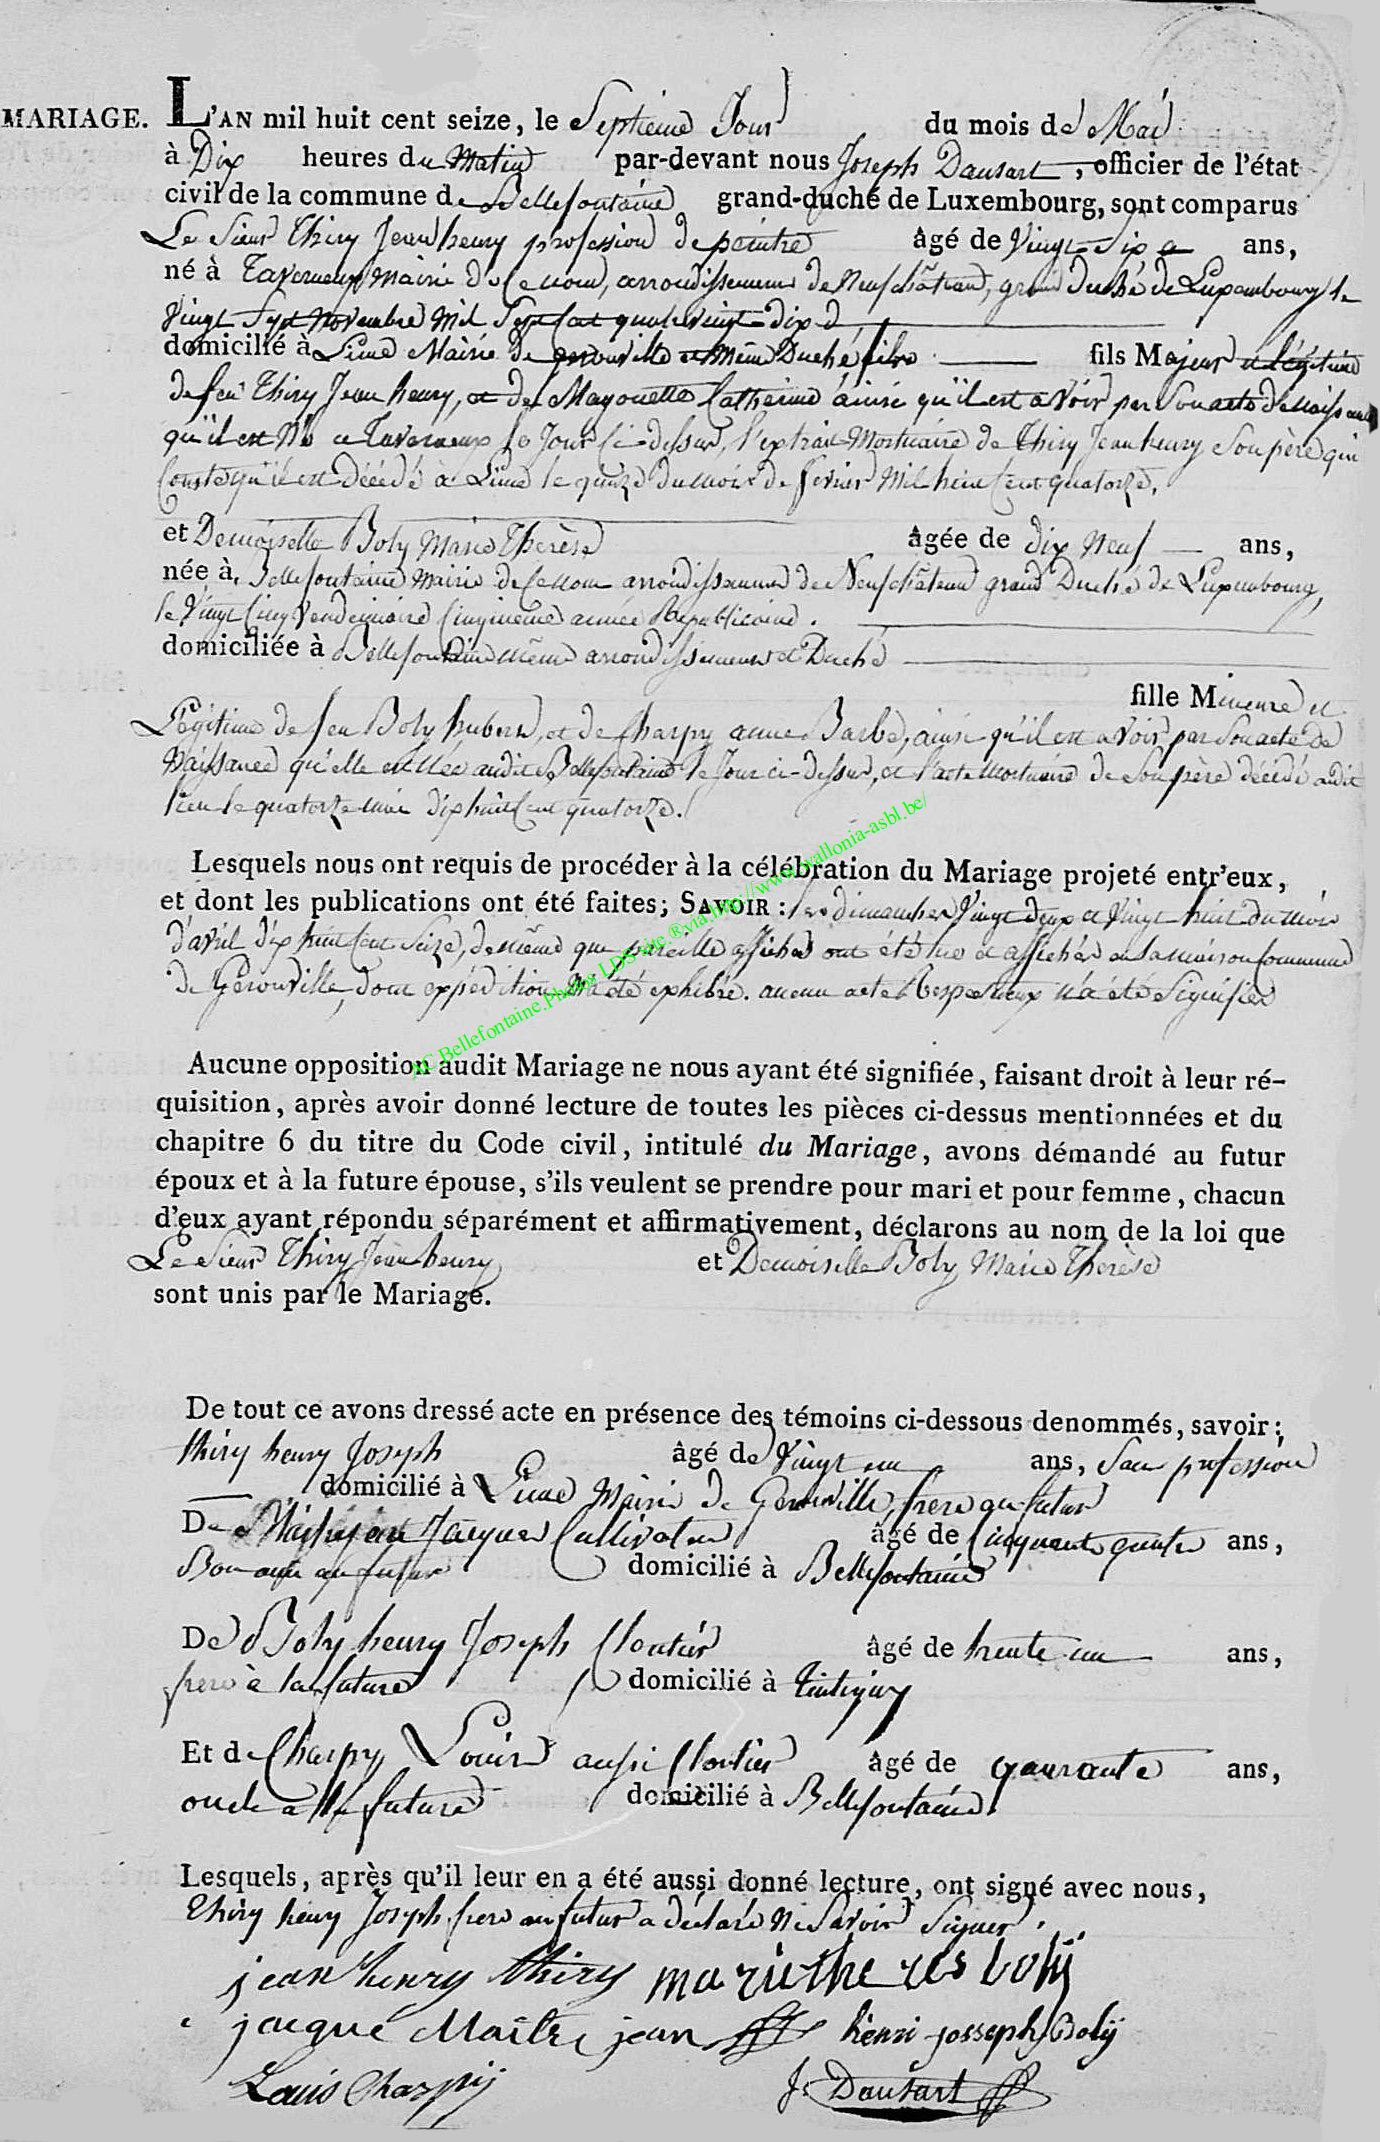 MARIAGE. L'AN mil huit cent seize, le Septieme Jour du mois de Mai
à Dix heures du Matin par-devant nous Joseph Dausart, officier de l'état
civil de la commune de Bellefontaine grand-duché de Luxembourg, sont comparus
Le Sieur Thiry Jean henry profession de peintre âgé de Vingt-Six ans,
né à Taverneux Mairie de Ce nom, arrondissement de Neufchâteau, grand Duché de Luxembourg le
Vingt Sept Novembre Mil Sept Cent quatrevingt-dix
domicilié à Lime Mairie de gerouville et même Duché fils Majeur et légitime
de feu Thiry Jean henry, et de Mayouette Catherine ainsi qu'il est a Voir par Son acte de Naissance
qu'il est Né a Taverneux le Jour Ci-dessus, l'extrait Mortuaire de Thiry Jean henry Son père qui
Conste qu'il est Décédé à Lime le quinze du mois de fevrier Mil huit Cent quatorze.
et Demoiselle Boly Marie Therèse âgée de dix Neuf ans,
née à Bellefontaine Mairie de Ce nom arrondissement de Neufchâteau grand Duché de Luxembourg,
le Vingt Cinq Vendemiaire Cinquieme année Republicaine.
domiciliée à Bellefontaine même arrondissement et Duché
fille Mineure et
Légitime de feu Boly hubert, et de Charpy anne Barbe, ainsi qu'il est a Voir par Son acte de
Naissance qu'elle est Née audit Bellefontaine le Jour ci-dessus, et l'acte Mortuaire de Son père décédé audit
lieu le quatorze mai dix huit Cent quatorze.
Lesquels nous ont requis de procéder à la célébration du Mariage projeté entr'eux,
et dont les publications ont été faites; SAVOIR : les dimanches Vingt deux et Vingt huit du Mois
d'avril dix huit Cent Seize, de même que pareille affiches ont été lue et affichés en la maison Commune
de Gerouville, dont expédition m'a été exhibée. aucun acte Respectueux n'a été Signifier
AC Bellefontaine.Photos LDS site ®via http://www.wallonia-asbl.be/
Aucune opposition audit Mariage ne nous ayant été signifiée, faisant droit à leur ré-
quisition, après avoir donné lecture de toutes les pièces ci-dessus mentionnées et du
chapitre 6 du titre du Code civil, intitulé du Mariage, avons démandé au futur
époux et à la future épouse, s'ils veulent se prendre pour mari et pour femme, chacun
d'eux ayant répondu séparément et affirmativement, déclarons au nom de la loi que
Le Sieur Thiry Jean henry et Demoiselle Boly Marie Therèse
sont unis par le Mariage.
De tout ce avons dressé acte en présence des témoins ci-dessous denommés, savoir:
thiry henry Joseph âgé de Vingt un ans, San profession
domicilié à Lime Mairie de Gerouville, frere au futur
De Maitrejean Jacques Cultivateur âgé de Cinquante quatre ans,
Bon ami au futur domicilié à Bellefontaine
De Boly henry Joseph Cloutier âgé de trente un ans,
frere à la future domicilié à Tintigny
Et de Charpy Louis aussi Cloutier âgé de quarante ans,
oncle a la future domicilié à Bellefontaine.
Lesquels, après qu'il leur en a été aussi donné lecture, ont signé avec nous,
Thiry henry Joseph frere au futur a déclaré Ne Savoir Signer.
jean henry thiry marie the res boly
jacque Maitre jean henri josseph Bolÿ
Louis Charpÿ J. Dausart